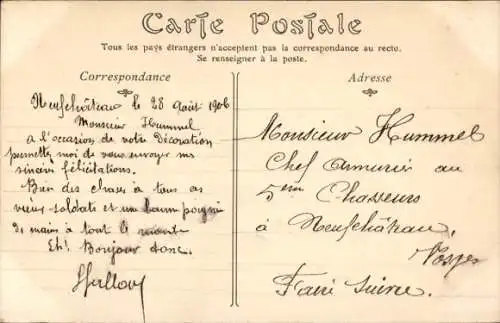 Carte Postale
Tous les pays étrangers n'acceptent pas la correspondance au recto.
Se renseigner à la poste.
Correspondance
Neufchâteau le 28 Août 1906
Monsieur Hummel
à l'occasion de votre décoration
permettez moi de vous envoyer mes
sincères félicitations.
Bien des choses à tous ces
vieux soldats et une bonne poignée
de mains à tout le monde
Eh! Bonjour donc.
Adresse
Monsieur Hummel
Chef armurier au
5ème Chasseurs
à Neufchâteau,
Vosges
Faire suivre.